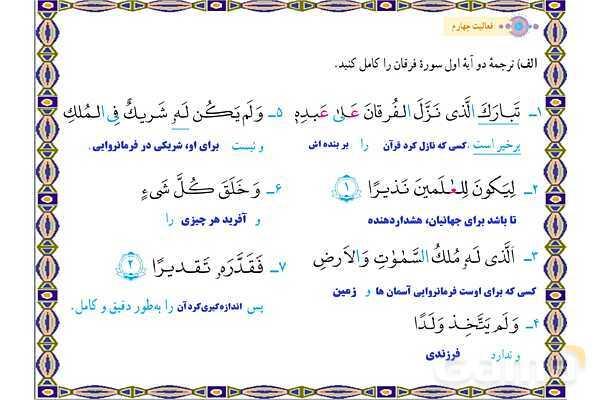 فعالیت چهارم
الف) ترجمهٔ دو آیهٔ اول سورهٔ فرقان را کامل کنید.
۱ـ تَبارَكَ الَّذی نَزَّلَ الفُرقانَ عَلیٰ عَبدِهٖ
پرخیر است ،کسی که نازل کرد قرآن را بر بنده اش
۲ـ لِیَكونَ لِلعٰلَمینَ نَذیرًا ۱
تا باشد برای جهانیان، هشداردهنده
۳ـ اَلَّذی لَهٗ مُلكُ السَّمٰوٰتِ وَالاَرضِ
کسی که برای اوست فرمانروایی آسمان ها و زمین
۴ـ وَلَم یَتَّخِذ وَلَدًا
و ندارد فرزندی
۵ـ وَلَم یَكُن لَهٗ شَریكٌ فِی المُلكِ
و نیست برای او، شریکی در فرمانروایی.
۶ـ وَ خَلَقَ كُلَّ شَیءٍ
و آفرید هر چیزی را
۷ـ فَقَدَّرَهٗ تَقدیرًا ۲
پس اندازه‌گیری‌کردآن را به‌طور دقیق و کامل.
Gama